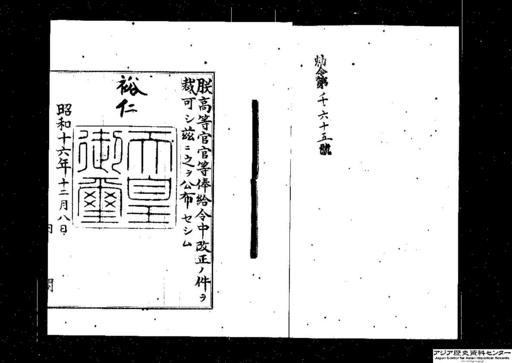 勅令第千六十五號
朕高等官官等俸給令中改正ノ件ヲ
裁可シ茲ニ之ヲ公布セシム
裕仁
天皇御璽
昭和十六年十二月八日
アジア歴史資料センター
Japan Center for Asian Historical Records